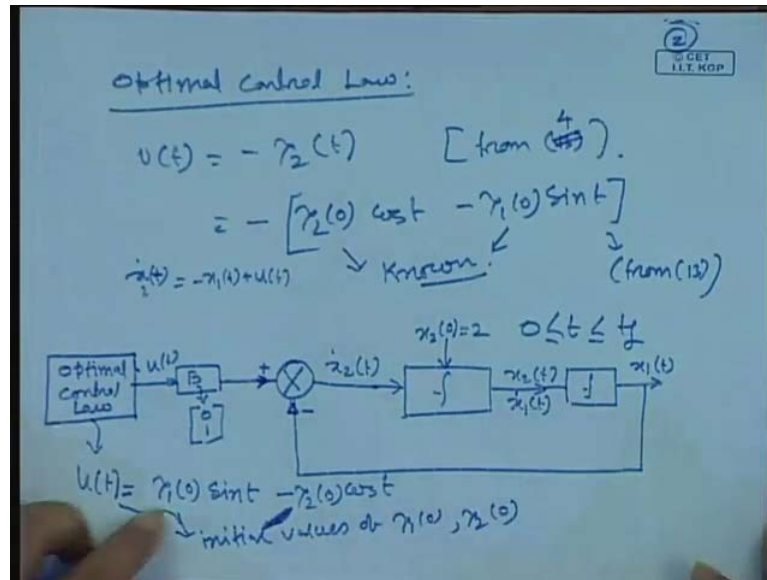 ②
© CET
I.I.T. KGP
Optimal Control Law:
u(t) = - λ₂(t) [from (4)].
= - [λ₂(0) cos t - λ₁(0) sin t]
Known. (from (13))
ẋ₂(t) = -x₁(t) + u(t)
x₂(0)=2 0 ≤ t ≤ tf
Optimal Control Law u(t) B + ẋ₂(t) ∫ x₂(t) ẋ₁(t) ∫ x₁(t)
[0 1] -
u(t) = λ₁(0) sin t - λ₂(0) cos t
initial values of λ₁(0), λ₂(0)